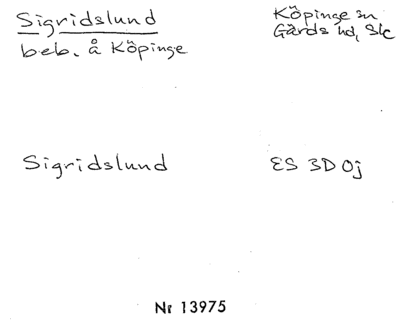 Sigridslund
beb. å Köpinge
Köpinge sn
Gärds hd, Skc
Sigridslund
ES 3D 0j
Nr 13975